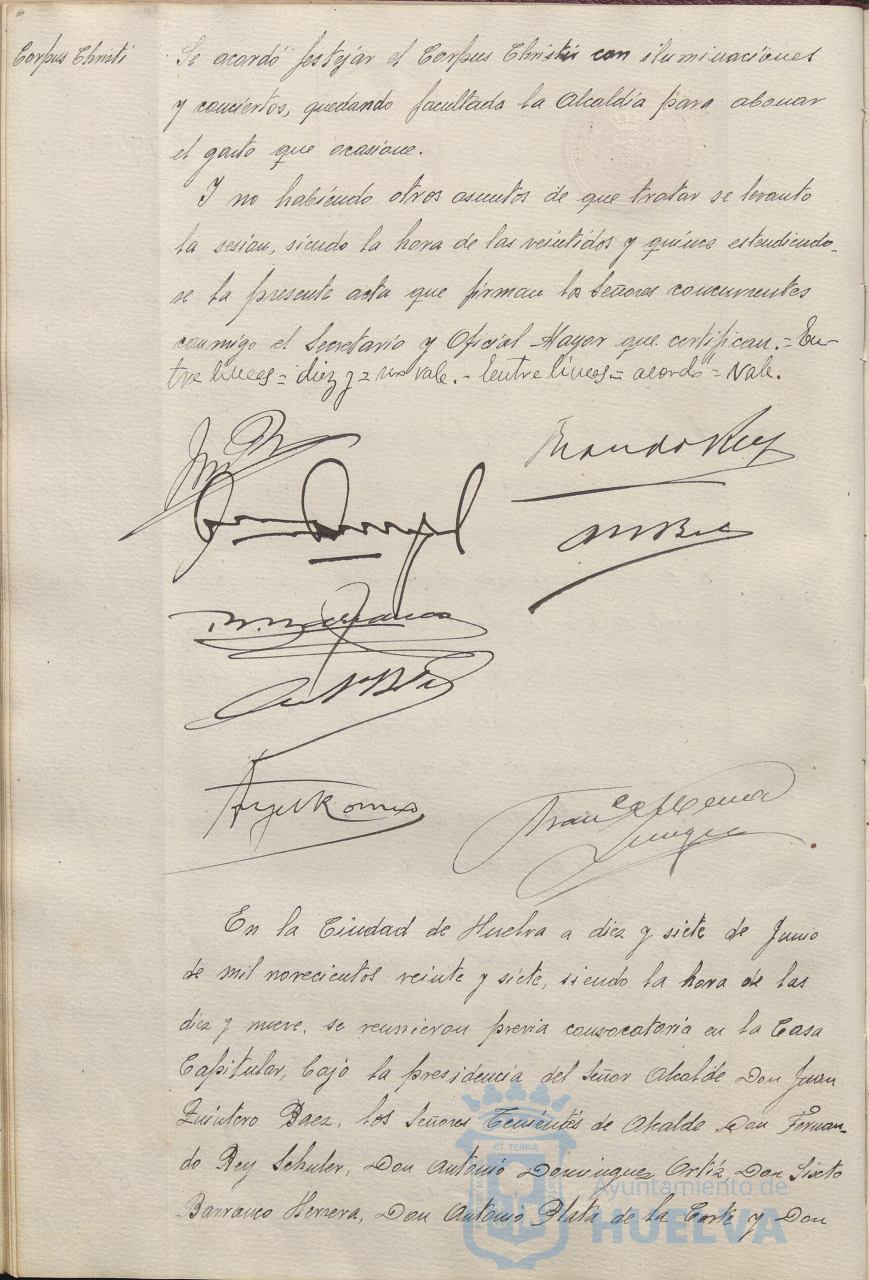 Corpus Christi
Se acordó festejar el Corpus Christi con iluminaciones
y conciertos, quedando facultada la Alcaldía para abonar
el gasto que ocasione.
Y no habiendo otros asuntos de que tratar se levanto
la sesión, siendo la hora de las veintidos y quince estendiendo-
se la presente acta que firman los Señores concurrentes
conmigo el Secretario y Oficial Mayor que certifican.= En-
tre lineas = diez y = vale. - Entre lineas = acordo = Vale.
Fernando Rey
B. Barranco
Angel Romero
En la Ciudad de Huelva a diez y siete de Junio
de mil novecientos veinte y siete, siendo la hora de las
diez y nueve, se reunieron previa convocatoria en la Casa
Capitular, bajo la presidencia del Señor Alcalde Don Juan
Quintero Baez, los Señores Tenientes de Alcalde Don Fernan-
do Rey Schuler, Don Antonio Dominguez Ortiz, Don Sixto
Barranco Herrera, Don Antonio Plata de la Corte y Don
ET TERRÆ
Ayuntamiento de
HUELVA